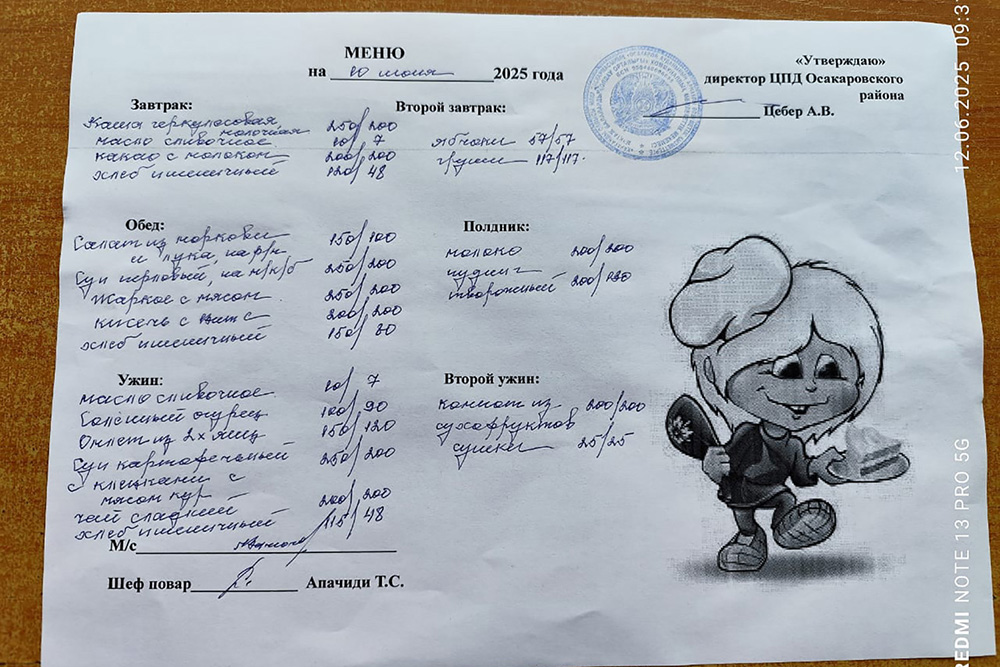 МЕНЮ
на 10 июня 2025 года
«Утверждаю»
директор ЦПД Осакаровского
района
Цебер А.В.
Завтрак:
Каша геркулесовая 250/200
молочная
масло сливочное 10/7
какао с молоком 200/200
хлеб пшеничный 120/48
Второй завтрак:
яблоки 57/57
груши 117/117.
Обед:
Салат из моркови 150/100
и лука, на р/м
Суп перловый, на м/к/б 250/200
Жаркое с мясом 250/200
кисель с 200/200
хлеб пшеничный 150/80
Полдник:
молоко 200/200
пудинг
творожный 200/180
Ужин:
масло сливочное 10/7
Солёный огурец 100/90
Омлет из 2х яиц 150/120
Суп картофельный 250/200
с клецками с
мясом кур
чай сладкий 200/200
хлеб пшеничный 115/48
Второй ужин:
компот из 200/200
сухофруктов
сушки 25/25
М/с
Шеф повар Апачиди Т.С.
12.06.2025 09:3
REDMI NOTE 13 PRO 5G